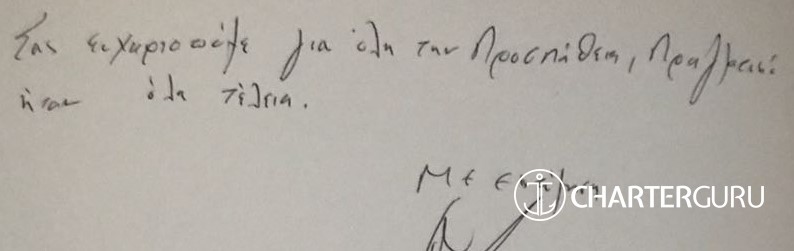 Σας ευχαριστούμε για όλη την Προσπάθεια, Πραγματικά
ήταν όλα τέλεια.
Με εκτίμηση
CHARTERGURU